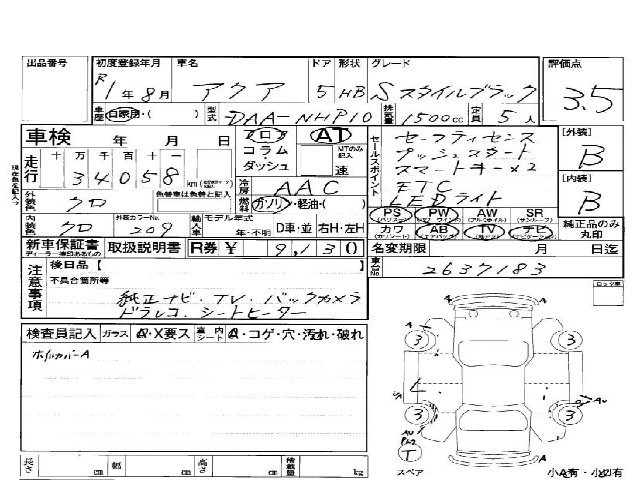 出品番号 初度登録年月 車名 ドア 形状 グレード 評価点
R1年8月 アクア 5 HB Sスタイルブラック 3.5
車歴 自家用・( ) 型式 DAA-NHP10 排気量 1500cc 定員 5人
車検 年 月 日 フロア AT セールスポイント セーフティセンス [外装]
コラム・ダッシュ MTのみ記入 速 プッシュスタート B
走行 十 万 千 百 十 一 スマートキー×2 [内装]
34058 km 冷房 AAC ETC B
外装色 クロ 色替車は色替と記入 燃料 ガソリン・軽油・( ) LEDライト
PS PW AW SR
内装色 クロ 外装カラーNo. 209 輸入車 モデル年式 年・不明 D車・並 右H・左H カワ AB TV ナビ 純正品のみ丸印
新車保証書 取扱説明書 R券 ¥ 9,130 名変期限 月 日迄
ディーラー捺印あるもの
注意事項 後日品【 】 車台No. 2637183
不具合箇所等
純正ナビ・TV・バックカメラ
ドラレコ・シートヒーター
検査員記入 ガラス A・X要ス 室内シート A・コゲ・穴・汚れ・破れ
ホイルカバーA
A 3 3 A
3 3 A
スペア A
長さ cm 幅 cm 高さ cm 積載量 kg 小A有・小凹有